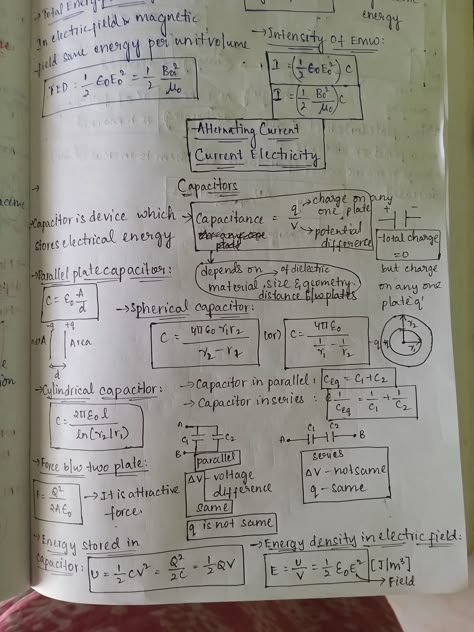 →Total Energy
In electric field & magnetic
-field same energy per unit volume
TED = 1/2 ε0E0² = 1/2 B0²/μ0
energy
→Intensity Of EMW:
I = (1/2 ε0E0²) C
I = (1/2 B0²/μ0) C
-Alternating Current
Current Electricity
Capacitors
→Capacitor is device which
stores electrical energy
→ Capacitance = q/V
→charge on any
one plate
→potential
difference
+ -
-Total charge
=0
but charge
on any one
plate q'
depends on → of dielectric
material, size & geometry
distance b/w plates
→Parallel plate capacitor:
C = ε0 A/d
-q +q
Area
d
→Spherical capacitor:
C = 4πε0 r1r2 / r2 - r1
(or)
C = 4πε0 / 1/r1 - 1/r2
-q
r2
→Cylindrical capacitor:
C = 2πε0 l / ln(r2/r1)
→Capacitor in parallel: Ceq = C1 + C2
→ Capacitor in series : 1/Ceq = 1/C1 + 1/C2
A
C1 C2
B
parallel
ΔV - voltage
difference
same
q is not same
A C1 C2 B
series
ΔV - not same
q - same
→Force b/w two plate:
F = Q²/2Aε0
→ It is attractive
force.
→Energy stored in
capacitor:
U = 1/2 CV² = Q²/2C = 1/2 QV
→Energy density in electric field:
E = U/V = 1/2 ε0E² [J/m³]
→ Field